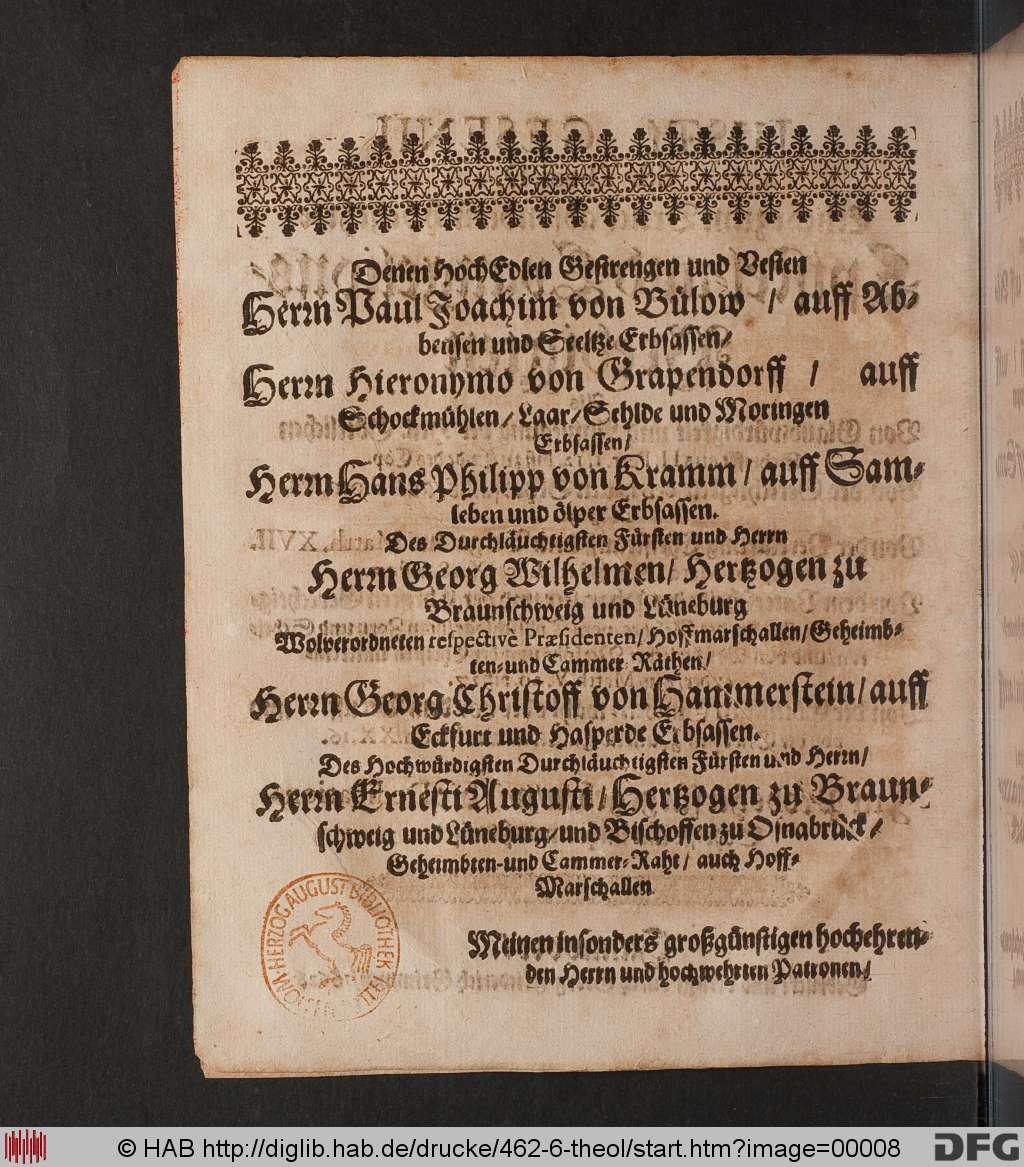 Denen HochEdlen Gestrengen und Vesten
Herrn Paul Joachim von Bülow / auff Ab-
bensen und Seeltze Erbsassen/
Herrn Hieronymo von Grapendorff / auff
Schockmühlen/ Laar/ Sehlde und Moringen
Erbsassen/
Herrn Hans Philipp von Kramm / auff Sam-
leben und ölper Erbsassen.
Des Durchläuchtigsten Fürsten und Herrn
Herrn Georg Wilhelmen/ Hertzogen zu
Braunschweig und Lüneburg
Wolverordneten respectivè Præsidenten/ Hoffmarschallen/ Geheimb-
ten-und Cammer Räthen/
Herrn Georg Christoff von Hammerstein/ auff
Eckfurt und Hasperde Erbsassen.
Des Hochwürdigsten Durchläuchtigsten Fürsten und Herrn/
Herrn Ernesti Augusti/ Hertzogen zu Braun-
schweig und Lüneburg/ und Bischoffen zu Osnabrück/
Geheimbten-und Cammer-Raht/ auch Hoff-
Marschallen
Meinen insonders großgünstigen hochehren-
den Herrn und hochwehrten Patronen/
HERZOG AUGUST BIBLIOTHEK
© HAB http://diglib.hab.de/drucke/462-6-theol/start.htm?image=00008
DFG